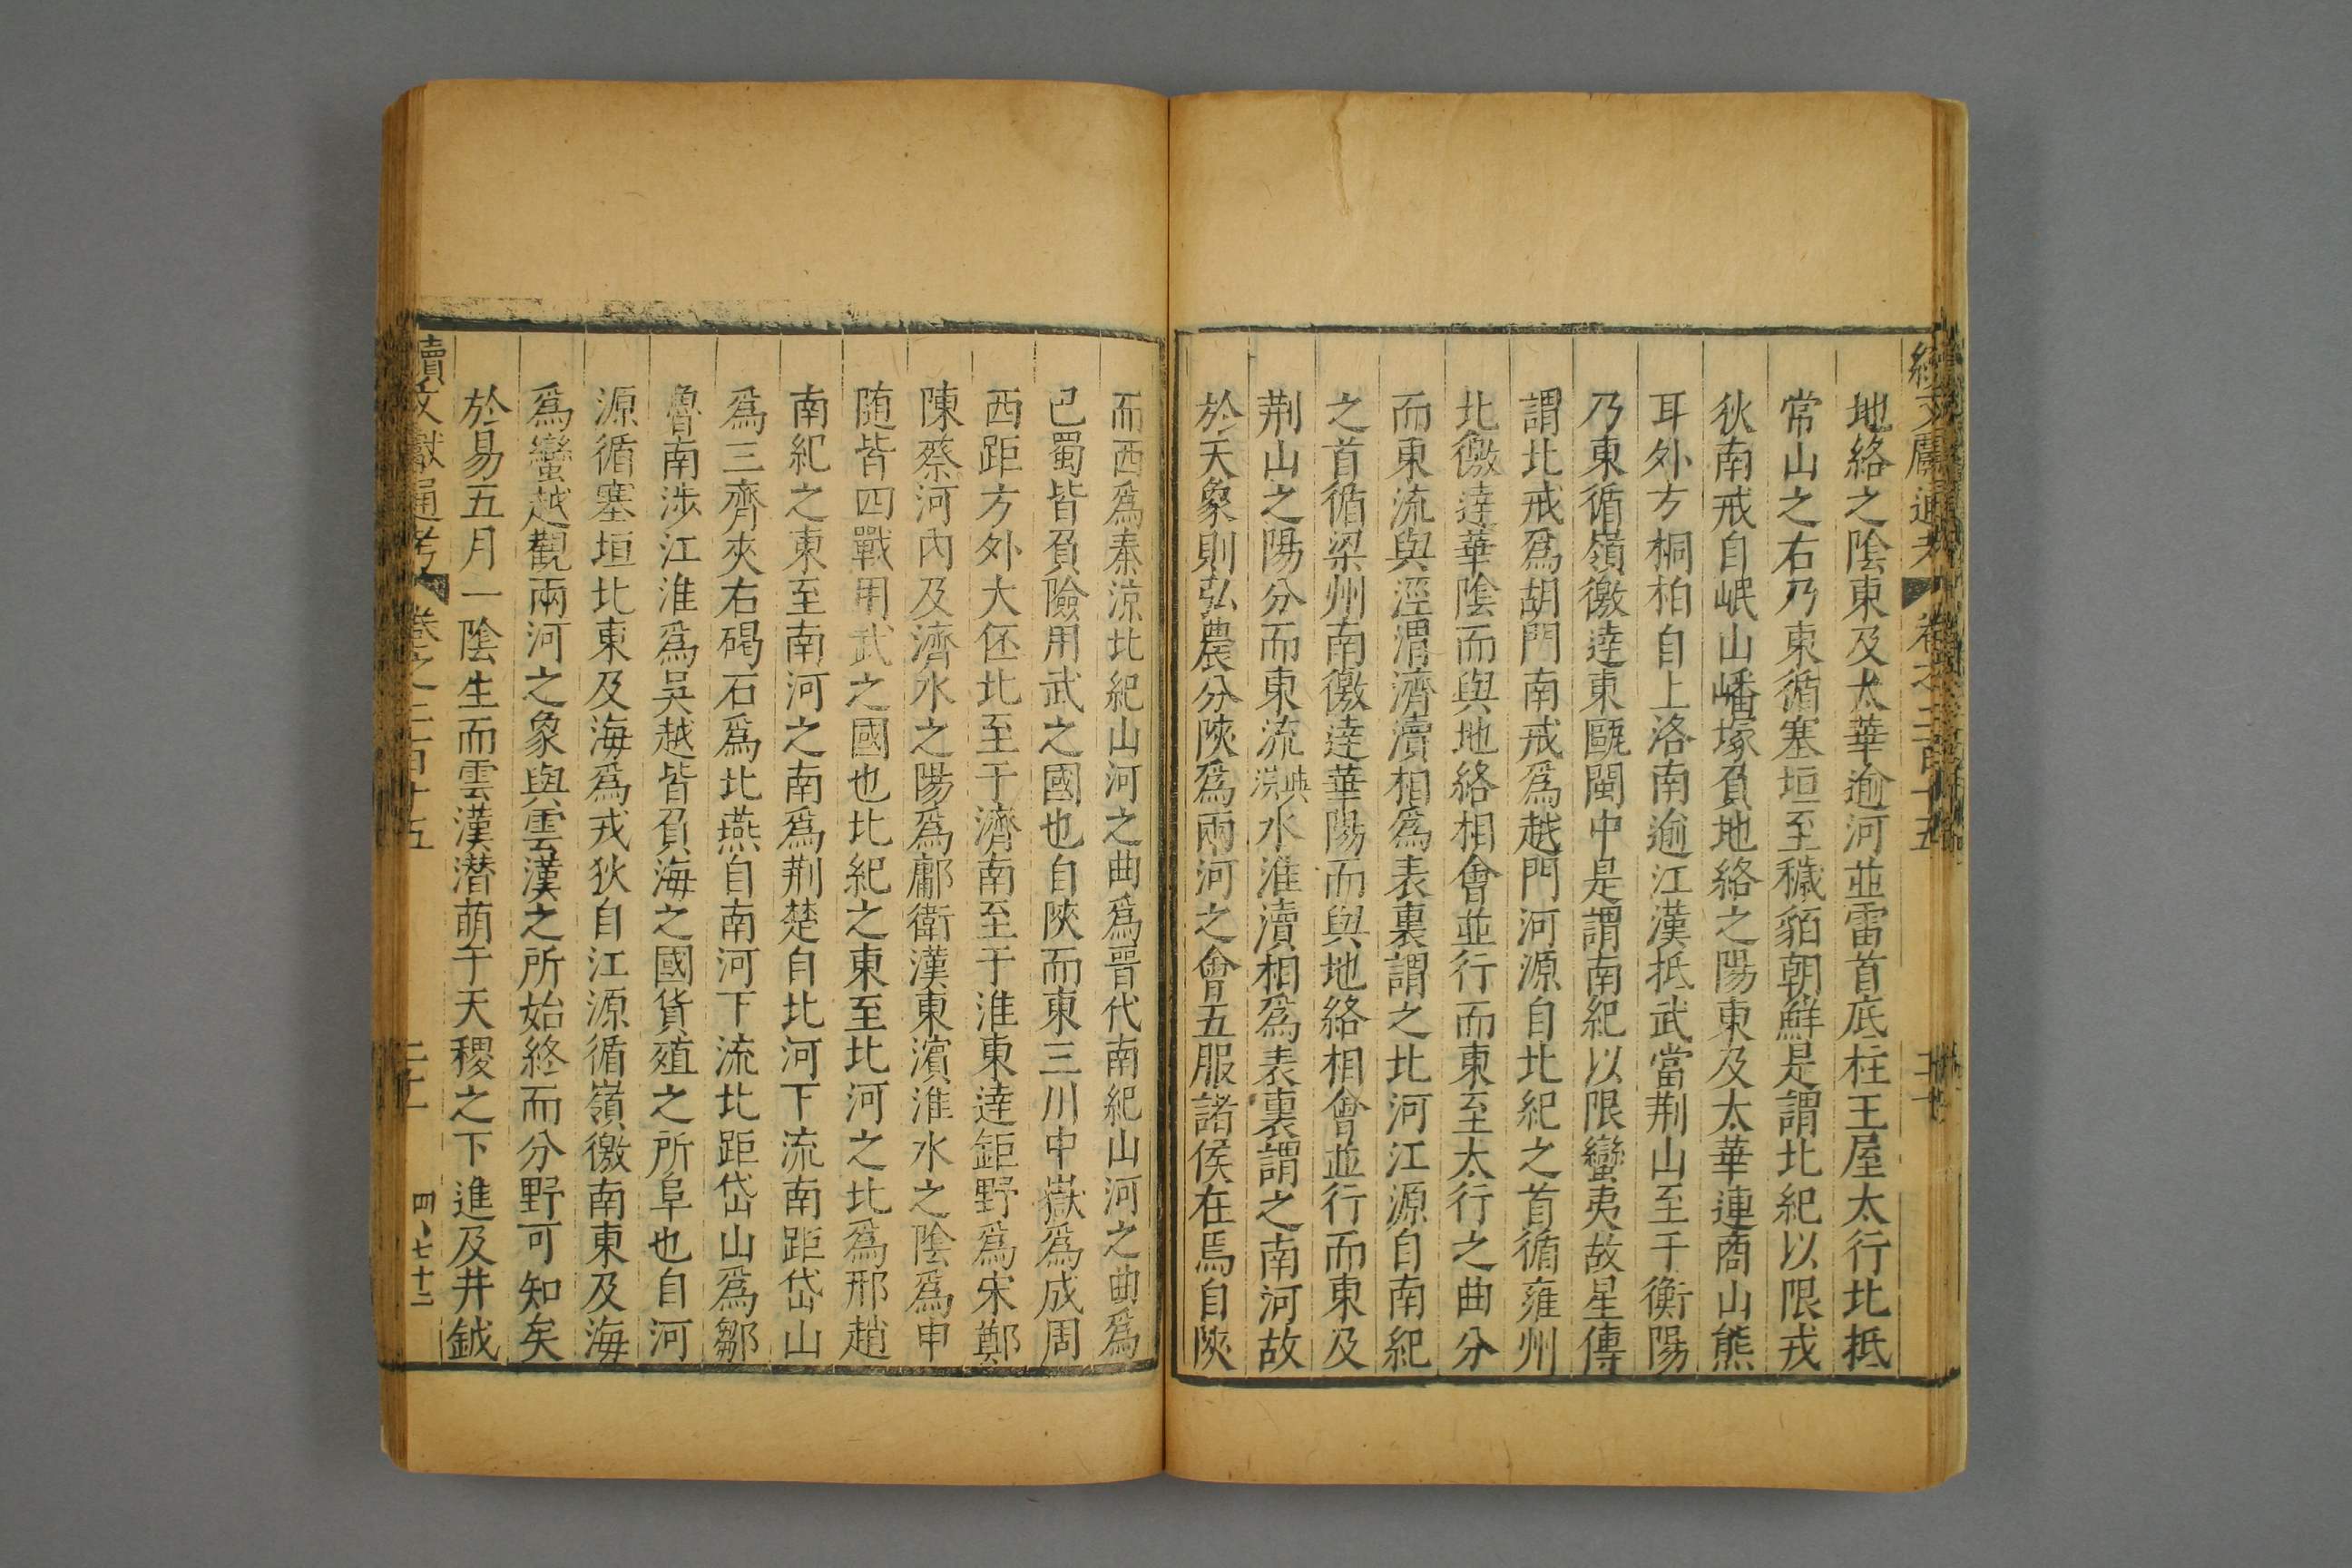 續文獻通考 卷之二百十五
地絡之陰東及太華逾河並雷首底柱王屋太行北抵
常山之右乃東循塞垣至穢貊朝鮮是謂北紀以限戎
狄南戒自岷山嶓塚負地絡之陽東及太華連商山熊
耳外方桐柏自上洛南逾江漢抵武當荆山至于衡陽
乃東循嶺徼逹東甌閩中是謂南紀以限蠻夷故星傳
謂北戒爲胡門南戒爲越門河源自北紀之首循雍州
北徼逹華陰而與地絡相會並行而東至太行之曲分
而東流與涇渭濟瀆相爲表裏謂之北河江源自南紀
之首循梁州南徼逹華陽而與地絡相會並行而東及
荆山之陽分而東流漢水淮瀆相爲表裏謂之南河故
於天象則弘農分陝爲兩河之會五服諸侯在焉自陝
而西爲秦凉北紀山河之曲爲晋代南紀山河之曲爲
巴蜀皆負險用武之國也自陝而東三川中嶽爲成周
西距方外大伾北至于濟南至于淮東逹鉅野爲宋鄭
陳蔡河內及濟水之陽爲鄘衛漢東濵淮水之陰爲申
随皆四戰用武之國也北紀之東至北河之北爲邢趙
南紀之東至南河之南爲荆楚自北河下流南距岱山
爲三齊夾右碣石爲北燕自南河下流北距岱山爲鄒
魯南涉江淮爲吳越皆負海之國貨殖之所阜也自河
源循塞垣北東及海爲戎狄自江源循嶺徼南東及海
爲蠻越觀兩河之象與雲漢之所始終而分野可知矣
於易五月一陰生而雲漢潜萌于天稷之下進及井鉞
續文獻通考 卷之二百十五 四、七十二